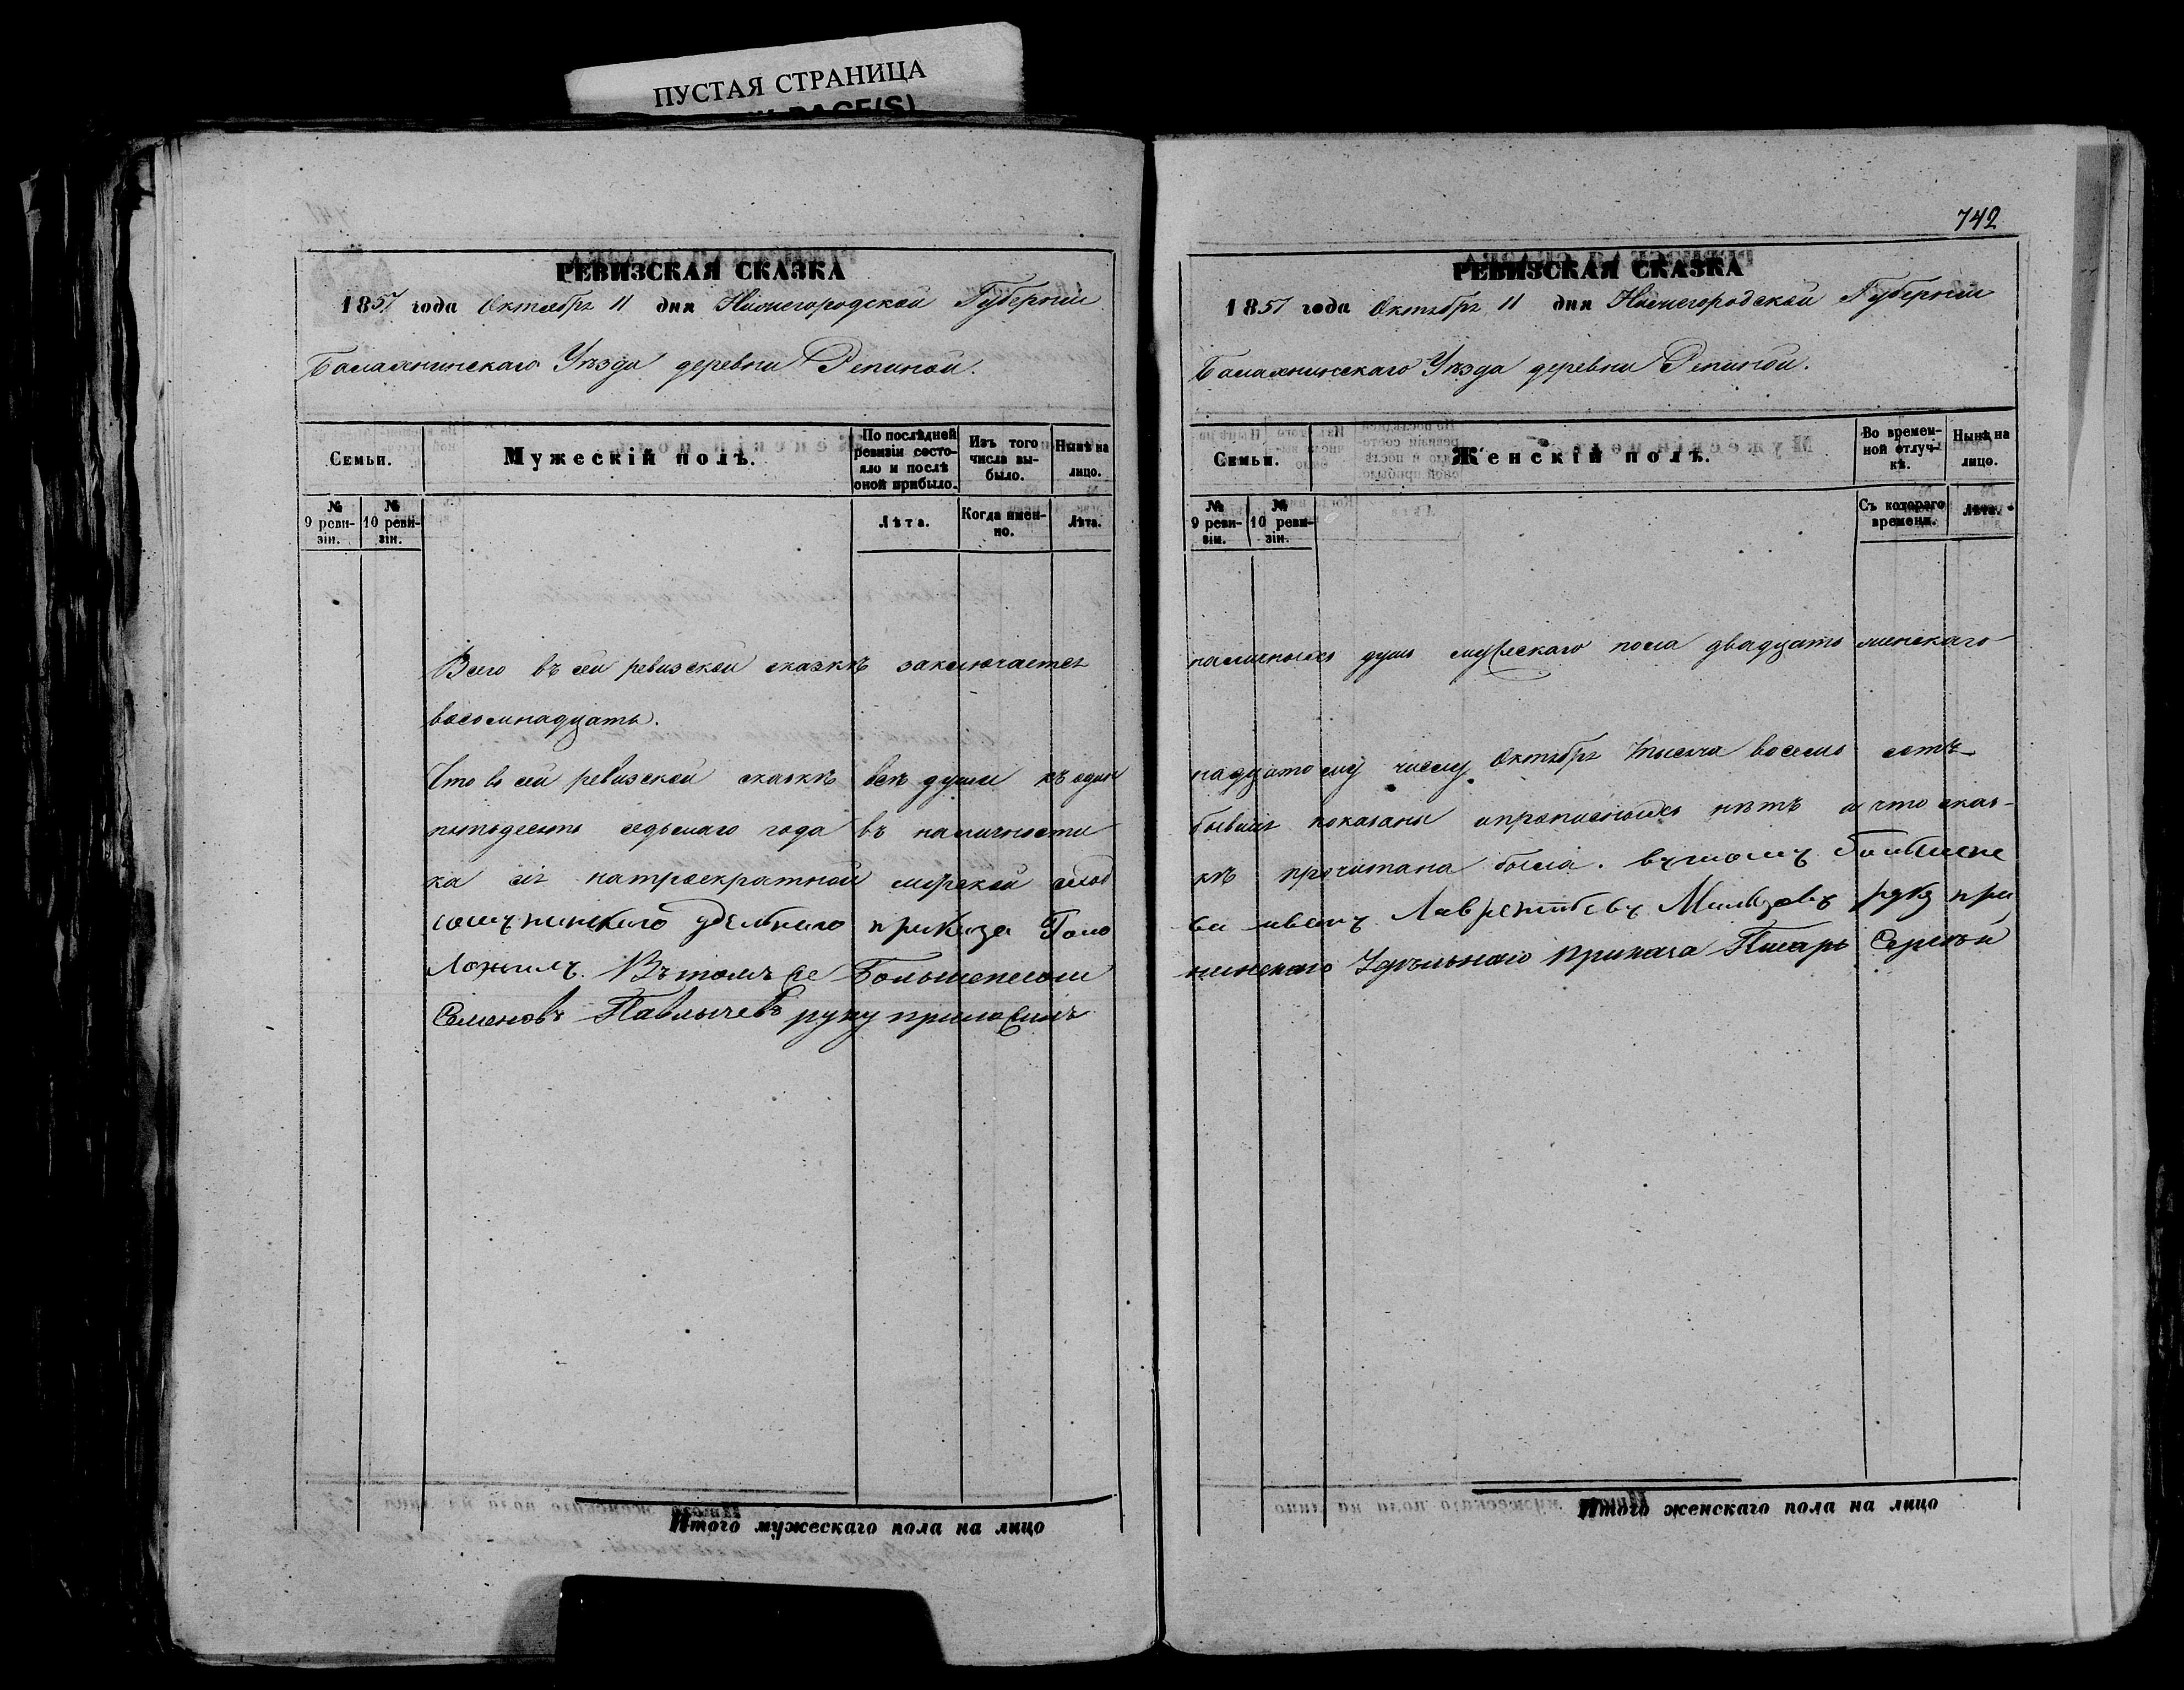 ПУСТАЯ СТРАНИЦА
PAGE(S)
РЕВИЗСКАЯ СКАЗКА
1857 года Октября 11 дня Нижегородской Губернии
Балахнинскаго Уѣзда деревни Репиной.
Семьи.
Мужескій полъ.
По послѣдней ревизіи состояло и послѣ оной прибыло.
Изъ того числа выбыло.
Нынѣ на лицо.
№ 9 ревизіи.
№ 10 ревизіи.
Лѣта.
Когда именно.
Лѣта.
Всего въ сей ревизской сказкѣ заключается
восемнадцать.
Что въ сей ревизской сказкѣ всѣ души къ один
пятьдесятъ седьмаго года въ наличности
ка сія натроекратной мірской сход
удѣльнаго приказа Голо
ложилъ. Въ томъ же Большепесош
Семеновъ Павлычевъ руку приложилъ
Итого мужескаго пола на лицо
742
РЕВИЗСКАЯ СКАЗКА
1857 года Октября 11 дня Нижегородской Губернии
Балахнинскаго Уѣзда деревни Репиной.
Семьи.
Женскій полъ.
Во временной отлучкѣ.
Нынѣ на лицо.
№ 9 ревизіи.
№ 10 ревизіи.
Съ котораго времени.
Лѣта.
наличныхъ душъ мужескаго пола двадцать женскаго
надцатому числу Октября тысяча восемь сотъ
бывшія показаны ипрописныхъ нѣтъ и что сказ-
кѣ прочитана была. вътомъ Большепе
ва Лаврентьевъ руку при
нинскаго Удѣльнаго приказа Писарь Сергѣй
Итого женскаго пола на лицо